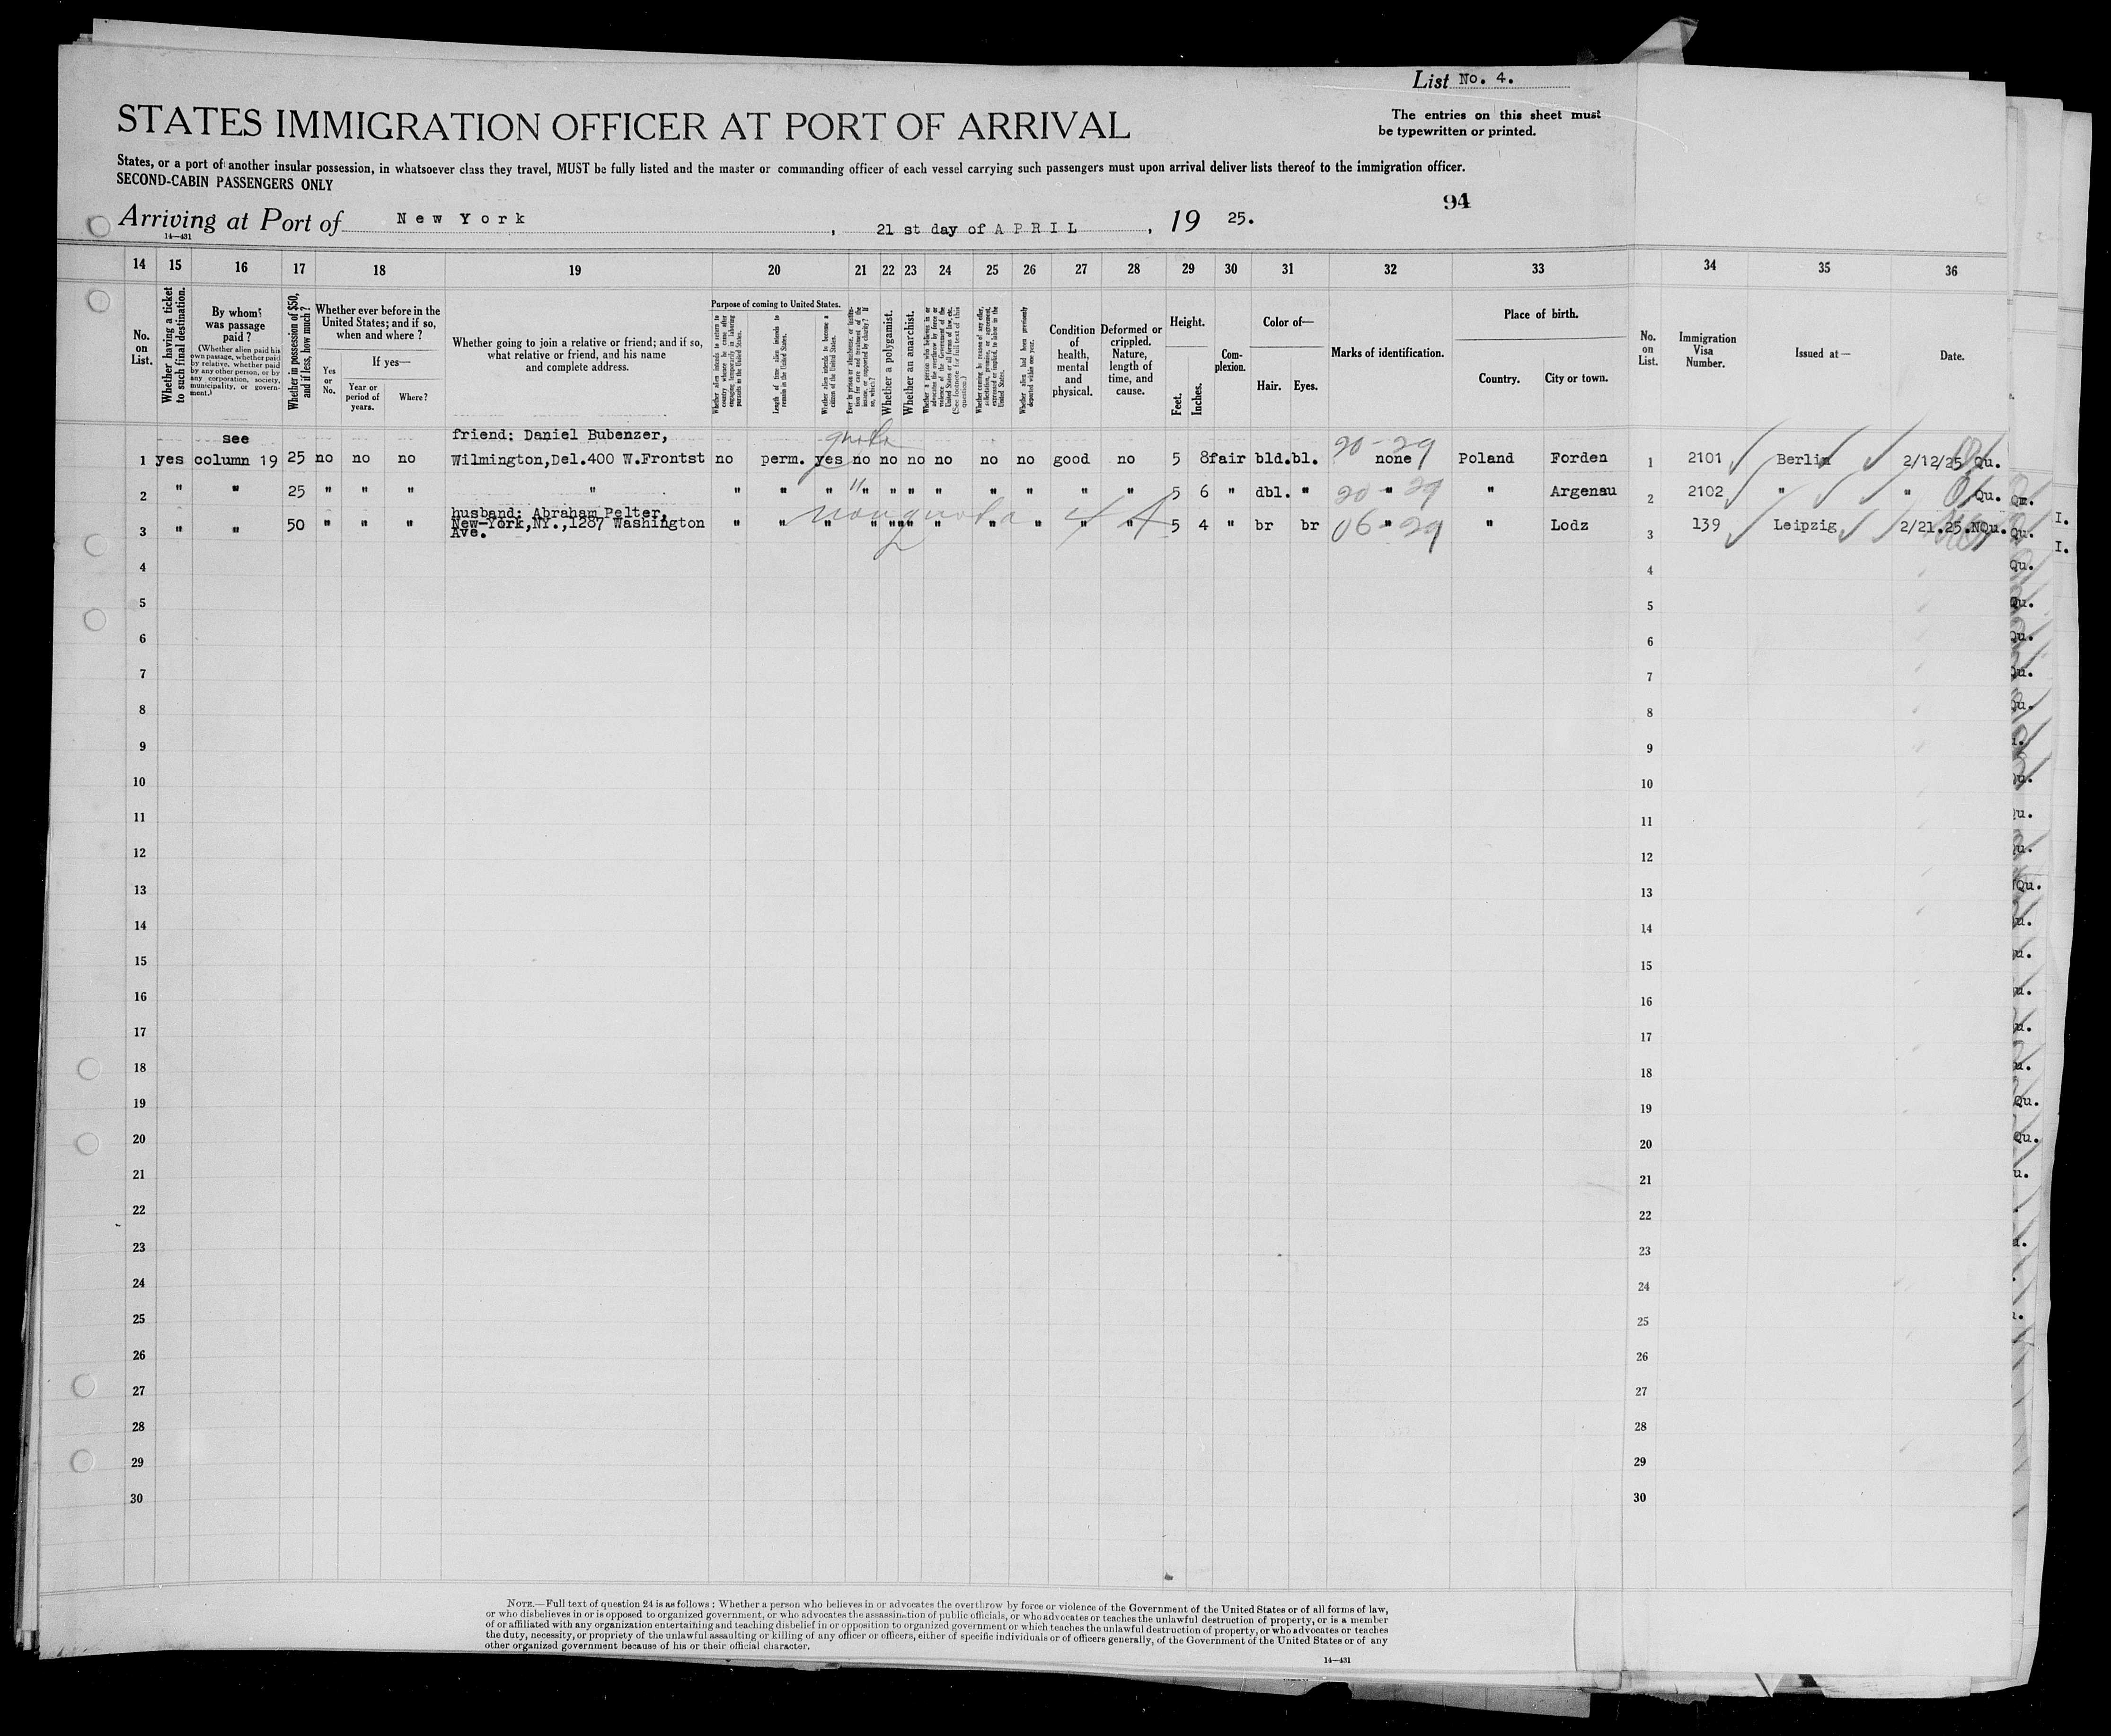 List No. 4.
STATES IMMIGRATION OFFICER AT PORT OF ARRIVAL
The entries on this sheet must
be typewritten or printed.
States, or a port of another insular possession, in whatsoever class they travel, MUST be fully listed and the master or commanding officer of each vessel carrying such passengers must upon arrival deliver lists thereof to the immigration officer.
SECOND-CABIN PASSENGERS ONLY
94
Arriving at Port of New York, 21 st day of APRIL, 19 25.
14—431
14 15 16 17 18 19 20 21 22 23 24 25 26 27 28 29 30 31 32 33 34 35 36
No. on List.
Whether having a ticket to such final destination.
By whom was passage paid?
(Whether alien paid his own passage, whether paid by relative, whether paid by any other person, or by any corporation, society, municipality, or government.)
Whether in possession of $50, and if less, how much?
Whether ever before in the United States; and if so, when and where?
Yes or No.
If yes—
Year or period of years.
Where?
Whether going to join a relative or friend; and if so, what relative or friend, and his name and complete address.
Purpose of coming to United States.
Whether alien intends to return to country whence he came after engaging temporarily in laboring pursuits in the United States.
Length of time alien intends to remain in the United States.
Whether alien intends to become a citizen of the United States.
Whether a polygamist.
Whether an anarchist.
Condition of health, mental and physical.
Deformed or crippled. Nature, length of time, and cause.
Height.
Feet.
Inches.
Complexion.
Color of—
Hair.
Eyes.
Marks of identification.
Place of birth.
Country.
City or town.
No. on List.
Immigration Visa Number.
Issued at—
Date.
quota
friend: Daniel Bubenzer,
see
1 yes column 19 25 no no no Wilmington,Del.400 W.Frontst no perm. yes no no no no no no good no 5 8 fair bld. bl. none 20-29 Poland Forden 1 2101 Berlin 2/12/25 Qu.
2 " " 25 " " " " " " " " " " " " " " " 5 6 " dbl. " " 20-29 " Argenau 2 2102 " " Qu.
non quota
husband: Abraham Pelter,
3 " " 50 " " " New-York,NY.,1287 Washington " " " " " " " " " " " 5 4 " br br " 06-29 " Lodz 3 139 Leipzig 2/21.25.NQu.
Ave.
4 4
5 5
6 6
7 7
8 8
9 9
10 10
11 11
12 12
13 13
14 14
15 15
16 16
17 17
18 18
19 19
20 20
21 21
22 22
23 23
24 24
25 25
26 26
27 27
28 28
29 29
30 30
NOTE.—Full text of question 24 is as follows: Whether a person who believes in or advocates the overthrow by force or violence of the Government of the United States or of all forms of law,
or who disbelieves in or is opposed to organized government, or who advocates the assassination of public officials, or who advocates or teaches the unlawful destruction of property, or is a member
of or affiliated with any organization entertaining and teaching disbelief in or opposition to organized government or which teaches the unlawful destruction of property, or who advocates or teaches
the duty, necessity, or propriety of the unlawful assaulting or killing of any officer or officers, either of specific individuals or of officers generally, of the Government of the United States or of any
other organized government because of his or their official character.
14—431